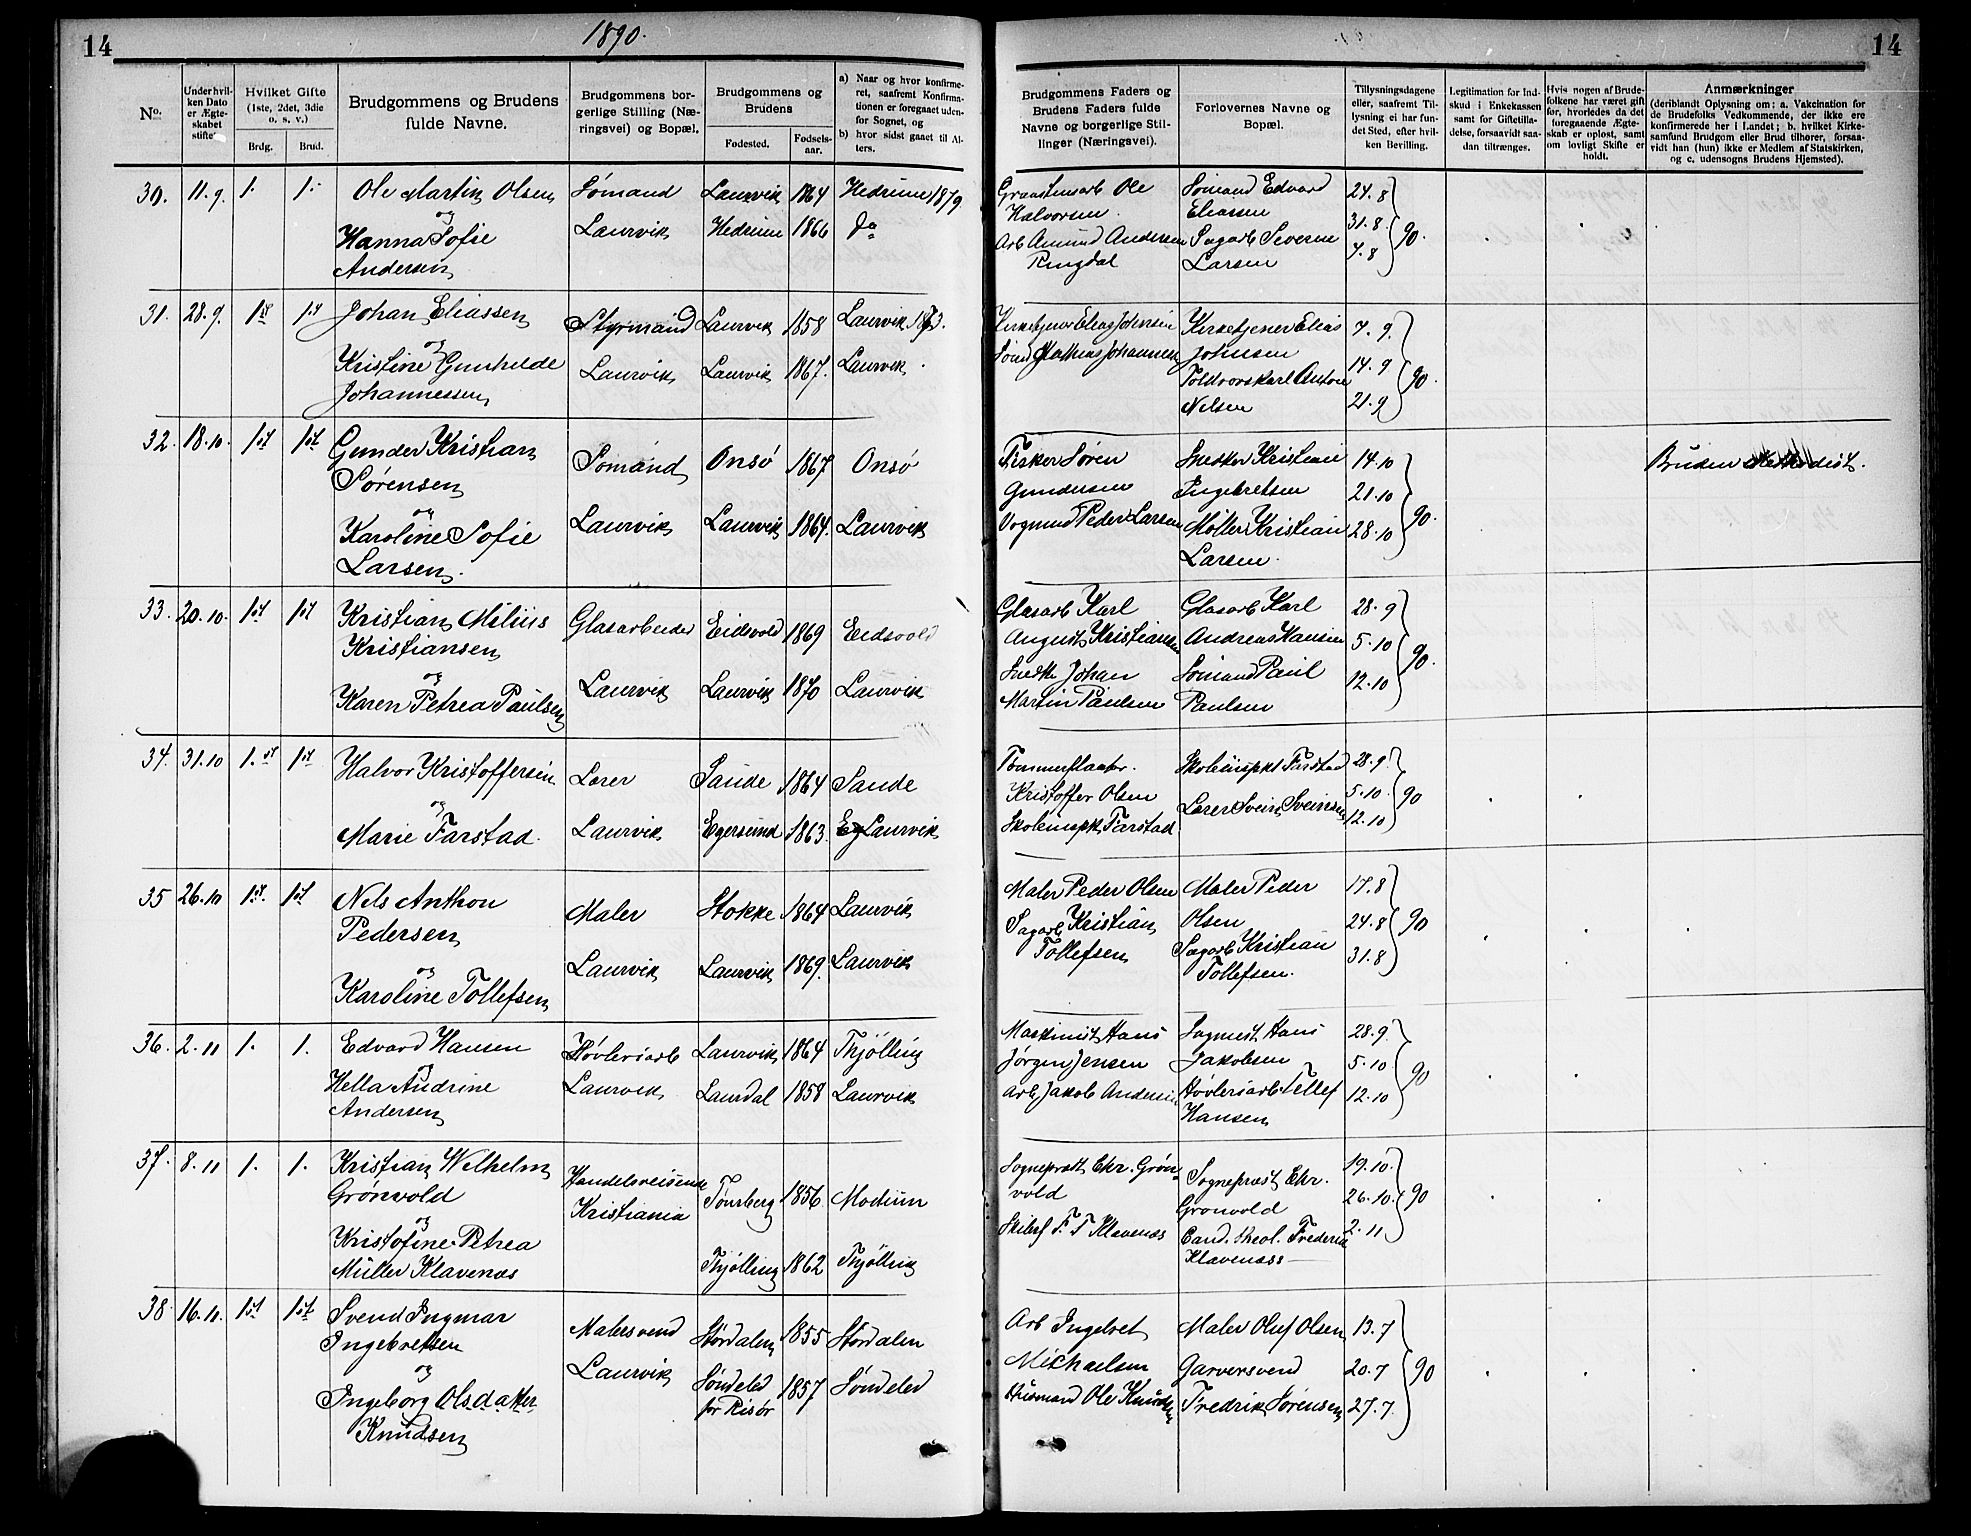 14
1890.
14
No.
Under hvilken Dato er Ægteskabet stiftet
Hvilket Gifte (1ste, 2det, 3die o. s. v.)
Brdg. Brud.
Brudgommens og Brudens fulde Navne.
Brudgommens borgerlige Stilling (Næringsvei) og Bopæl.
Brudgommens og Brudens
Fødested. Fødselsaar.
a) Naar og hvor konfirmeret, saafremt Konfirmationen er foregaaet udenfor Sognet, og
b) hvor sidst gaaet til Alters.
Brudgommens Faders og Brudens Faders fulde Navne og borgerlige Stillinger (Næringsvei).
Forlovernes Navne og Bopæl.
Tillysningsdagene eller, saafremt Tillysning ei har fundet Sted, efter hvilken Bevilling.
Legitimation for Indskud i Enkekassen samt for Giftetilladelse, forsaavidt saadan tiltrænges.
Hvis nogen af Brudefolkene har været gift før, hvorledes da det foregaaende Ægteskab er opløst, samt om lovligt Skifte er holdt.
Anmærkninger
(deriblandt Oplysning om: a. Vakcination for de Brudefolks Vedkommende, der ikke ere konfirmerede her i Landet; b. hvilket Kirkesamfund Brudgom eller Brud tilhører, forsaavidt han (hun) ikke er Medlem af Statskirken, og c. udensogns Brudens Hjemsted).
30. 11.9. 1. 1. Ole Martin Olsen Sømand Laurvik 1864 Hedrum 1879
og
Hanna Sofie Laurvik Hedrum 1866 do
Andersen
Graastensarb Ole Sømand Edvard 24.8
Halvorsen Eliassen 31.8 90.
Arb Amund Andersen Sagarb Severin
Ringdal Larsen
31. 28.9. 1st 1st Johan Eliassen Styrmand Laurvik 1858 Laurvik
og
Kristine Gunhilde Laurvik Laurvik 1867. Laurvik
Johannessen
Kirketjener Elias Johnsen Kirketjener Elias 7.9.
Mathias Johannesen Johnsen 14.9 90.
Toldvorskarl Anton
Nelsen 21.9
32. 18.10. 1st 1st Gunder Kristian Sømand Onsø 1867 Onsø
Sørensen
og
Karoline Sofie Laurvik Laurvik 1864. Laurvik
Larsen.
Fisker Søren Snedker Kristian 14.10 Bruden Methodist.
Gundersen Ingebretsen 21.10 90.
Vogmand Peder Larsen Møller Kristian 28.10
Larsen.
33. 20.10. 1st 1st Kristian Milius Glasarbeider Eidsvold 1869 Eidsvold
Kristiansen
og
Karen Petrea Paulsen Laurvik Laurvik 1870 Laurvik
Glasarb Karl Glasarb Karl 28.9
August Kristiansen Andreas Hansen 5.10 90.
Snedk Johan Sømand Paul 12.10
Martin Paulsen Paulsen
34. 31.10 1.st 1st Halvor Kristoffersen Lærer Saude 1864 Saude
og
Marie Farstad. Laurvik Egersund 1863. Laurvik
Tømmerfløter. Skoleinspkt Farstad 28.9.
Kristoffer Olsen 5.10. 90
Skoleinspk. Farstad Lærer Svein Sveinsen 12.10
35 26.10 1st. 1st Nels Anthon Maler Stokke 1864 Laurvik
Pedersen
og
Karoline Tollefsen Laurvik Laurvik 1869. Laurvik
Maler Peder Olsen Maler Peder 17.8
Sagarb Kristian Olsen 24.8 90
Tollefsen Sagarb Kristian 31.8
Tollefsen.
36. 2.11 1. 1. Edvard Hansen Høvleriarb Laurvik 1864 Thjølling
og
Hella Andrine Laurvik Laurdal 1858 Laurvik
Andersen
Maskinist Hans Sagmest. Hans 28.9
Jørgen Jensen Jakobsen 5.10 90
Arb. Jakob Andersen Høvleriarb Tellef 12.10
Hansen
37. 8.11 1. 1. Kristian Wilhelm Handelsreisende Tønsberg 1856 Modum
Grönvold Kristiania
og
Kristofine Petrea
Müller Klavenæs Thjølling 1862 Thjølling
Sogneprest Chr. Grön- Sogneprest Chr. 19.10.
vold Gronvold 26.10. 90
Skibsf F. F Klavenæs Cand. theol. Frederik 2.11
Klavenæss
38 16.11. 1st 1st Svend Ingmar Malersvend Størdalen 1855 Størdalen
Ingebretsen
og
Ingeborg Olsdatter Laurvik Søndeled 1857 Søndeled
Knudsen for Risør
Arb Ingebret Maler Oluf Olsen 13.7
Michaelsen Garversvend 20.7 90
Husmand Ole Knudsen Fredrik Sørensen 27.7.